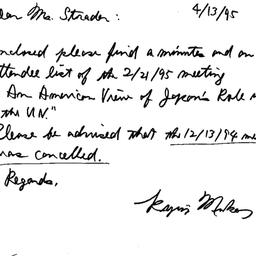 4/13/95
Dear Ms. Strader:
nclosed please find a minutes and an
ttendee list of the 2/21/95 meeting
An American View of Japan's Role
the U.N."
lease be advised that the 12/13/94 me
was cancelled.
Regards,